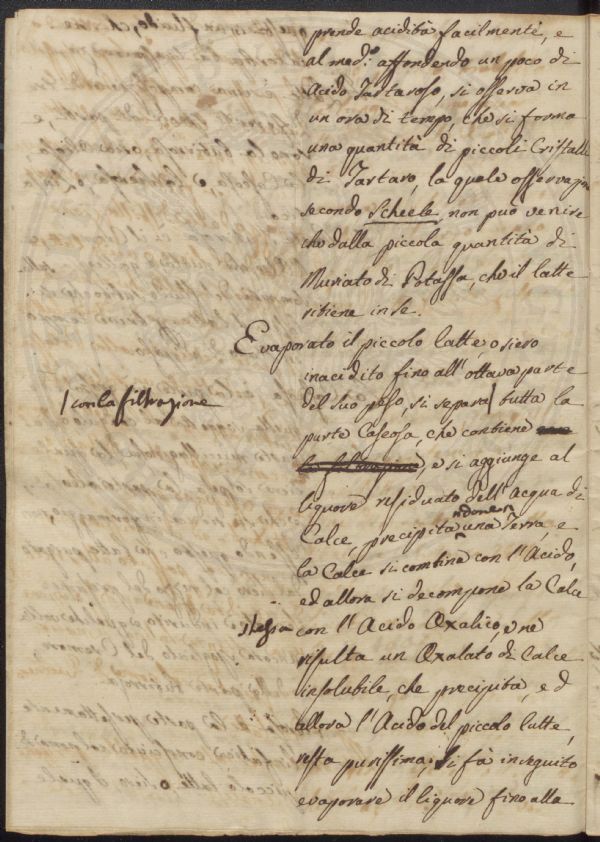 prende acidità facilmente, e
al med.º affondendo un poco di
Acido Tartaroso, si osserva in
un ora di tempo, che si forma
una quantità di piccoli Cristalli
di Tartaro, la quale osservazione
secondo Scheele, non può venire
che dalla piccola quantità di
Muriato di Potassa, che il latte
ritiene in se.
Evaporato il piccolo latte, o siero
inacidito fino all'ottava parte
del suo peso, si separa| tutta la
|con la filtrazione
parte Caseosa, che contiene
la filtrazione, e si aggiunge al
liquore residuato dell'Acqua di
Calce, precipitandone una Terra, e
la Calce si combina con l'Acido,
ed allora si decompone la Calce
stessa con l'Acido Oxalico, e ne
risulta un Oxalato di Calce
insolubile, che precipita, ed
allora l'Acido del piccolo latte,
resta purissimo; Si fà in seguito
evaporare il liquore fino alla